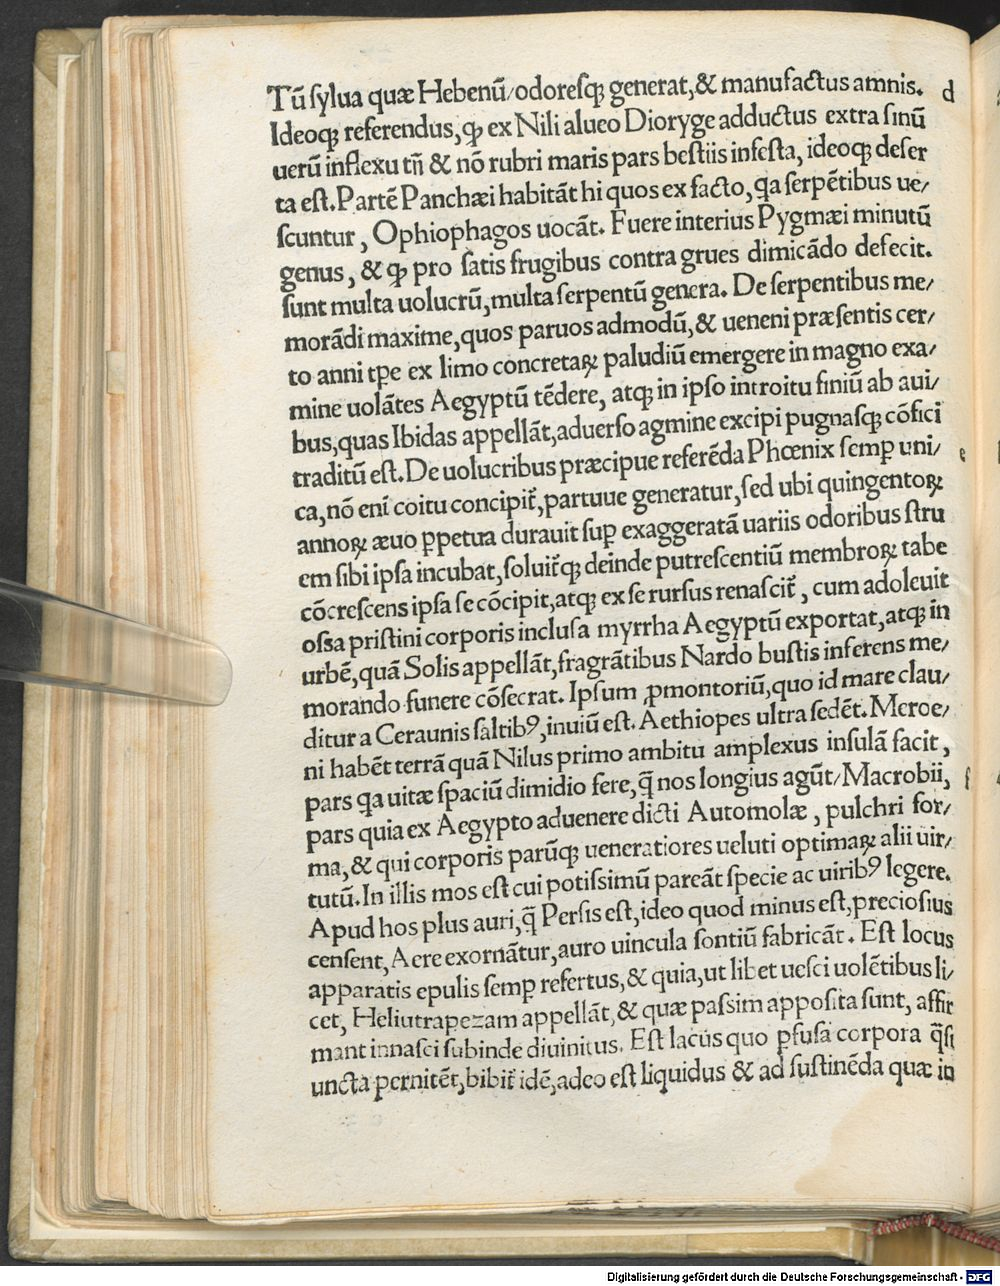 Tū ſylua quæ Hebenū/odoreſqꝫ generat,& manufactus amnis. d
Ideoqꝫ referendus,ꝙ ex Nili alueo Dioryge adductus extra ſinū
uerū inflexu tn̄ & nō rubri maris pars beſtiis infeſta, ideoqꝫ deſer
ta eſt.Partē Panchæi habitāt hi quos ex facto,qa ſerpētibus ue/
ſcuntur, Ophiophagos uocāt. Fuere interius Pygmæi minutū
genus, & ꝙ pro ſatis frugibus contra grues dimicādo defecit.
ſunt multa uolucrū,multa ſerpentū genera. De ſerpentibus me/
morādi maxime,quos paruos admodū,& ueneni præſentis cer/
to anni tꝑe ex limo concretaꝝ paludiū emergere in magno exa/
mine uolātes Aegyptū tēdere, atqꝫ in ipſo introitu finiū ab aui/
bus,quas Ibidas appellāt,aduerſo agmine excipi pugnaſqꝫ cōfici
traditū eſt.De uolucribus præcipue referēda Phœnix ſemꝑ uni/ e
ca,nō eni coitu concipit̄,partuue generatur,ſed ubi quingentoꝝ
annoꝝ æuo ꝑpetua durauit ſuꝑ exaggeratā uariis odoribus ſtru
em ſibi ipſa incubat,ſoluit̄qꝫ deinde putreſcentiū membroꝝ tabe
cōcreſcens ipſa ſe cōcipit,atqꝫ ex ſe rurſus renaſcit̄, cum adoleuit
oſsa priſtini corporis incluſa myrrha Aegyptū exportat,atqꝫ in
urbē,quā Solis appellāt,fragrātibus Nardo buſtis inferens me/
morando funere cōſecrat. Ipſum ꝓmontoriū,quo id mare clau/
ditur a Ceraunis ſaltibꝰ,inuiū eſt. Aethiopes ultra ſedēt. Meroe/
ni habēt terrā quā Nilus primo ambitu amplexus inſulā facit,
pars qa uitæ ſpaciū dimidio fere,q̄ nos longius agūt/Macrobii, f
pars quia ex Aegypto aduenere dicti Automolæ, pulchri for/
ma,& qui corporis parūqꝫ ueneratiores ueluti optimaꝝ alii uir/
tutū.In illis mos eſt cui potiſsimū pareāt ſpecie ac uiribꝰ legere.
Apud hos plus auri,q̄ Perſis eſt,ideo quod minus eſt,precioſius
cenſent,Aere exornātur,auro uincula ſontiū fabricāt. Eſt locus
apparatis epulis ſemꝑ refertus,& quia,ut libet ueſci uolētibus li/
cet, Heliutrapezam appellāt,& quæ paſsim appoſita ſunt, affir
mant innaſci ſubinde diuinitus. Eſt lacus quo ꝑfuſa corpora q̄ſi
uncta pernitēt,bibit̄ idē,adeo eſt liquidus & ad ſuſtinēda quæ in
Digitalisierung gefördert durch die Deutsche Forschungsgemeinschaft - DFG